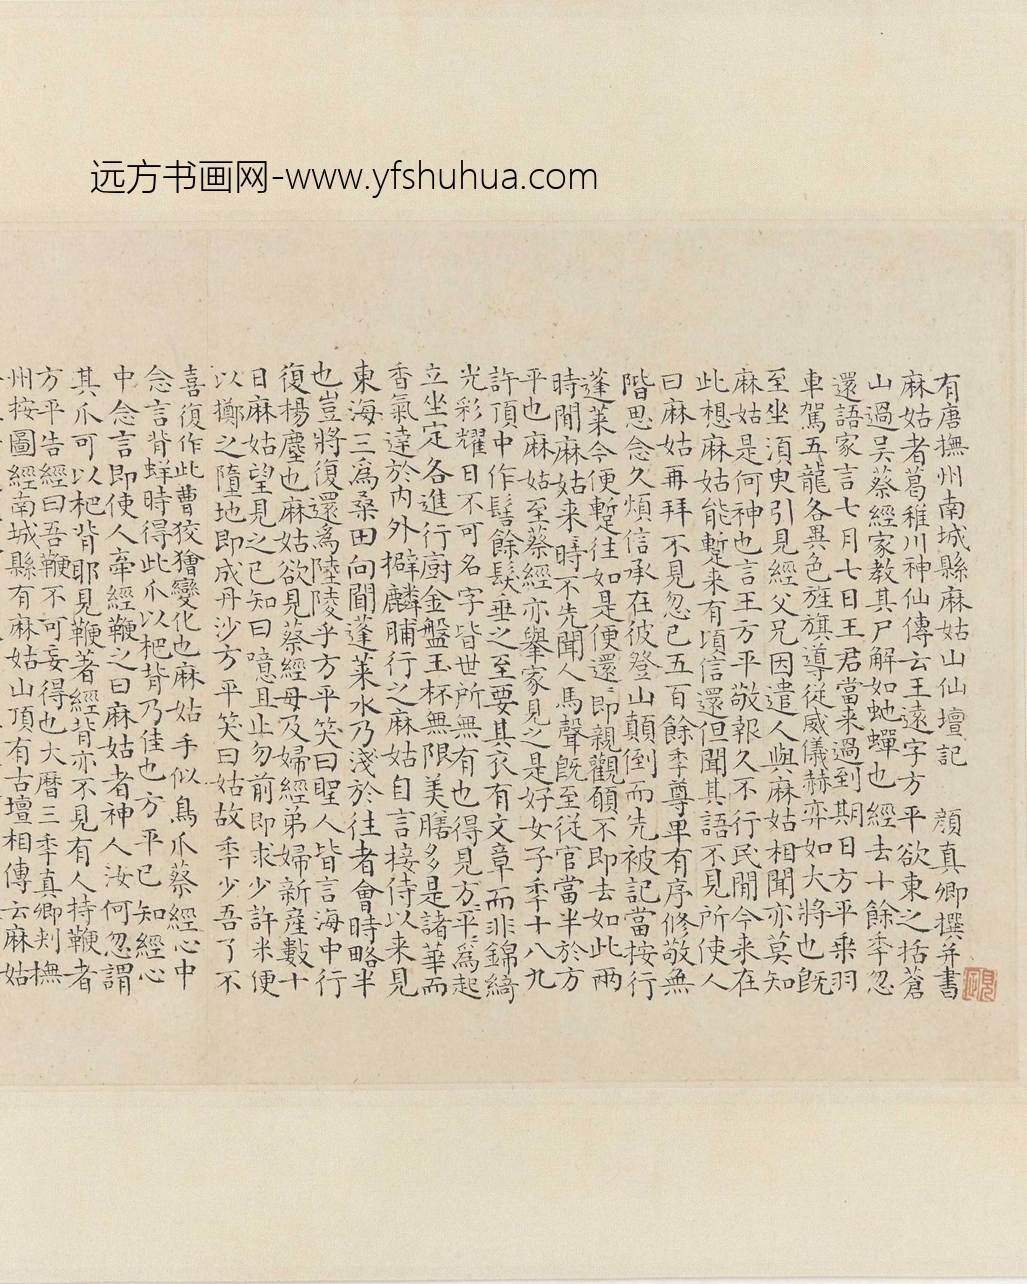 远方书画网-www.yfshuhua.com
有唐撫州南城縣麻姑山仙壇記 顔真卿撰并書
麻姑者葛稚川神仙傳云王遠字方平欲東之括蒼
山過吴蔡經家教其尸解如虵蟬也經去十餘季忽
還語家言七月七日王君當来過到期日方平乗羽
車駕五龍各異色旌旗導從威儀赫弈如大將也旣
至坐湏臾引見經父兄因遣人與麻姑相聞亦莫知
麻姑是何神也言王方平敬報久不行民閒今来在
此想麻姑能蹔来有頃信還但聞其語不見所使人
曰麻姑再拜不見忽已五百餘季尊卑有序修敬無
階思念久煩信承在彼登山顛倒而先被記當按行
蓬莱今便蹔往如是便還即親觀願不即去如此兩
時間麻姑来時不先聞人馬聲旣至從官當半於方
平也麻姑至蔡經亦舉家見之是好女子季十八九
許頂中作髻餘髮垂之至要其衣有文章而非錦綺
光彩耀日不可名字皆世所無有也得見方平爲起
立坐定各進行廚金盤玉杯無限美膳多是諸華而
香氣達於内外擗麟脯行之麻姑自言接侍以来見
東海三爲桑田向間蓬莱水乃淺於往者會時略半
也豈將復還爲陸陵乎方平笑曰聖人皆言海中行
復楊塵也麻姑欲見蔡經母及婦經弟婦新産數十
日麻姑望見之已知曰噫且止勿前即求少許米便
以擲之墮地即成丹沙方平笑曰姑故季少吾了不
喜復作此曹狡獪變化也麻姑手似鳥爪蔡經心中
念言背蛘時得此爪以杷背乃佳也方平已知經心
中念言即使人牽經鞭之曰麻姑者神人汝何忽謂
其爪可以杷背耶見鞭著經背亦不見有人持鞭者
方平告經曰吾鞭不可妄得也大曆三季真卿刾撫
州按圖經南城縣有麻姑山頂有古壇相傳云麻姑